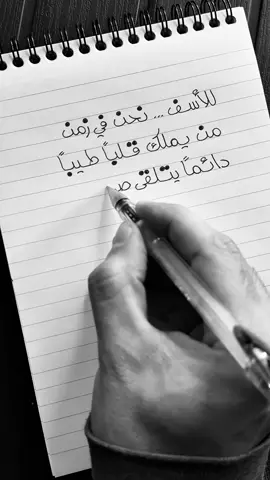 للأسف ... نحن في زمن
من يملك قلباً طيباً
دائماً يتلقى صـ